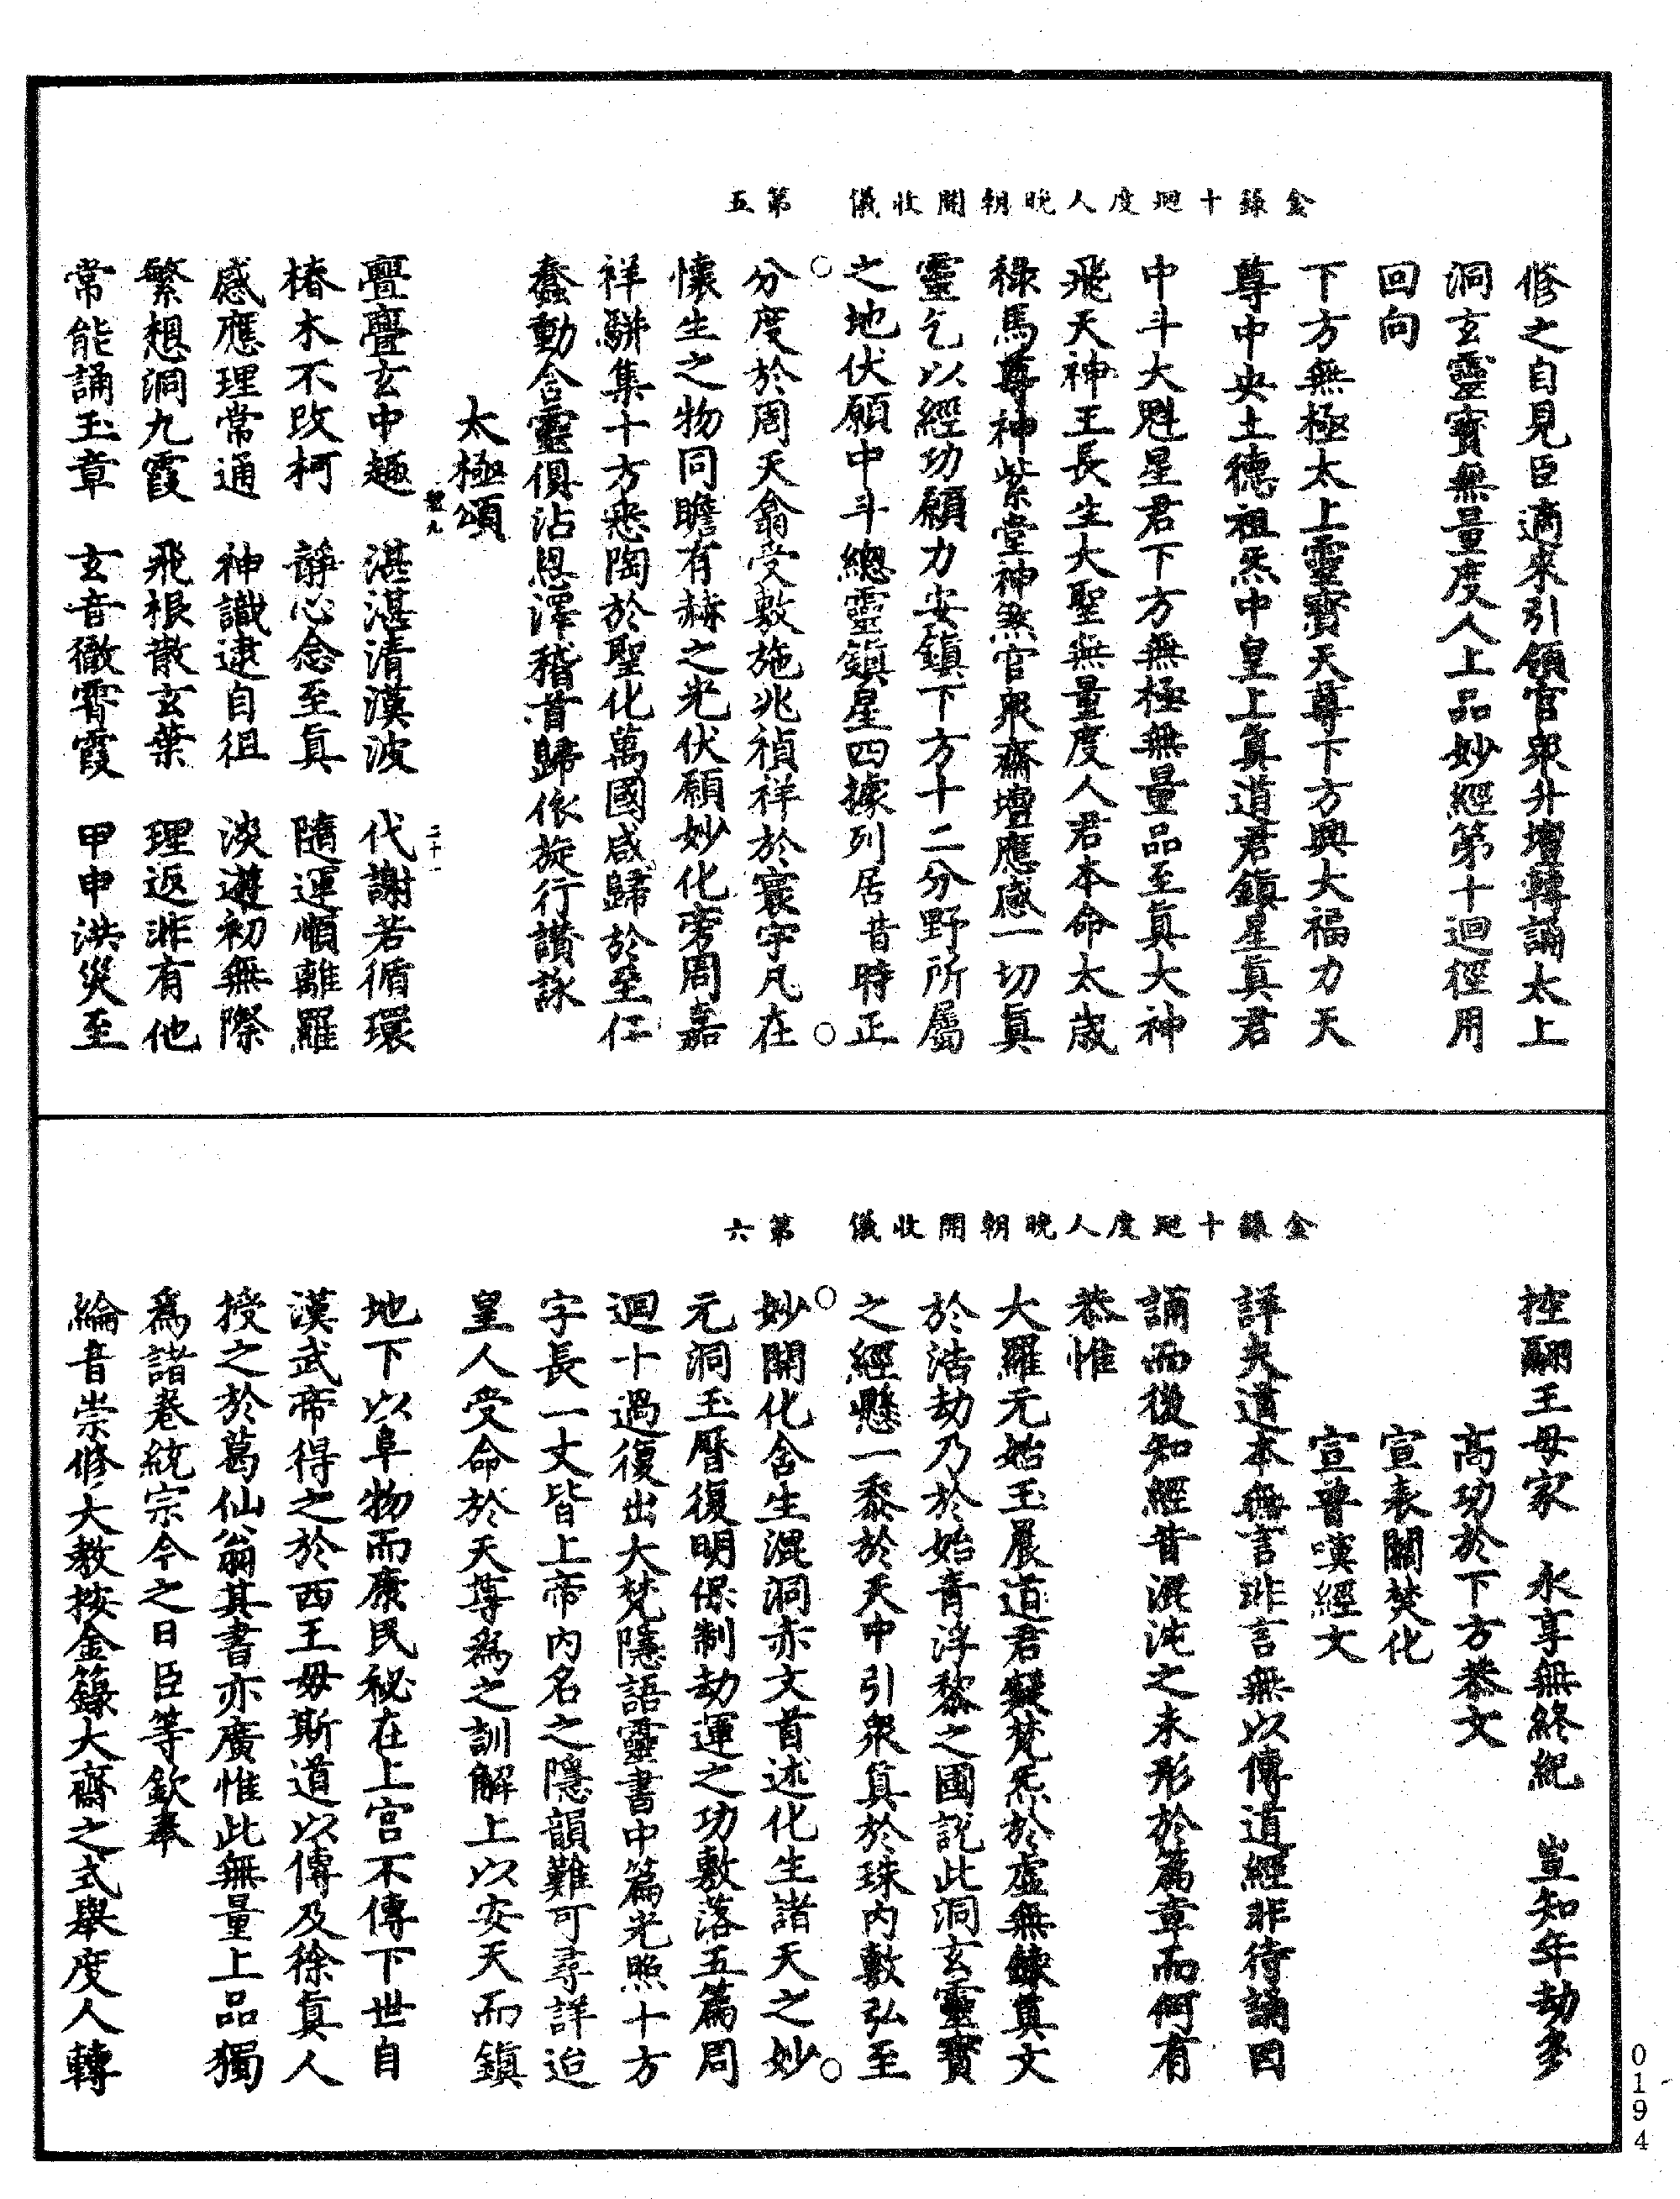 金籙十迴度人晚朝開收儀　第五
修之自見臣適來引領官衆升壇轉誦太上
洞玄靈寶無量度人上品妙經第十迴徑用
回向
下方無極太上靈寶天尊下方興大福力天
尊中央土德祖炁中皇上真道君鎮星真君
中斗大魁星君下方無極無量品至真大神
飛天神王長生大聖無量度人君本命太歲
祿馬尊神紫堂神煞官衆齋壇應感一切真
靈乞以經功願力安鎮下方十二分野所屬
之地伏願中斗總靈鎮星四據列居昔時正
分度於周天翕受敷施兆禎祥於寰宇凡在
懷生之物同瞻有赫之光伏願妙化旁周嘉
祥駢集十方悉陶於聖化萬國咸歸於至仁
蠢動含靈俱沾恩澤稽首歸依旋行讚詠
太極頌
亹亹玄中趣　湛湛清漢波　代謝若循環
椿木不改柯　靜心念至真　隨運順離羅
感應理常通　神識逮自徂　淡遊初無際
繁想洞九霞　飛根散玄葉　理返非有他
常能誦玉章　玄音徹霄霞　甲申洪災至
金籙十迴度人晚朝開收儀　第六
控翮王母家　永享無終紀　豈知年劫多
高功於下方恭文
宣表關焚化
宣普嘆經文
詳夫道本無言非言無以傳道經非待誦因
誦而後知經昔混沌之未形於篇章而何有
恭惟
大羅元始玉晨道君凝梵炁於虛無鍊真文
於浩劫乃於始青浮黎之國說此洞玄靈寶
之經懸一黍於天中引衆真於珠内敷弘至
妙開化含生混洞赤文首述化生諸天之妙
元洞玉曆復明保制劫運之功敷落五篇周
迴十過復出大梵隱語靈書中篇光照十方
字長一丈皆上帝内名之隱韻難可尋詳迨
皇人受命於天尊爲之訓解上以安天而鎮
地下以阜物而康民秘在上宫不傳下世自
漢武帝得之於西王母斯道以傳及徐真人
授之於葛仙翁其書亦廣惟此無量上品獨
爲諸卷統宗今之日臣等欽奉
綸音崇修大教按金籙大齋之式舉度人轉
0194